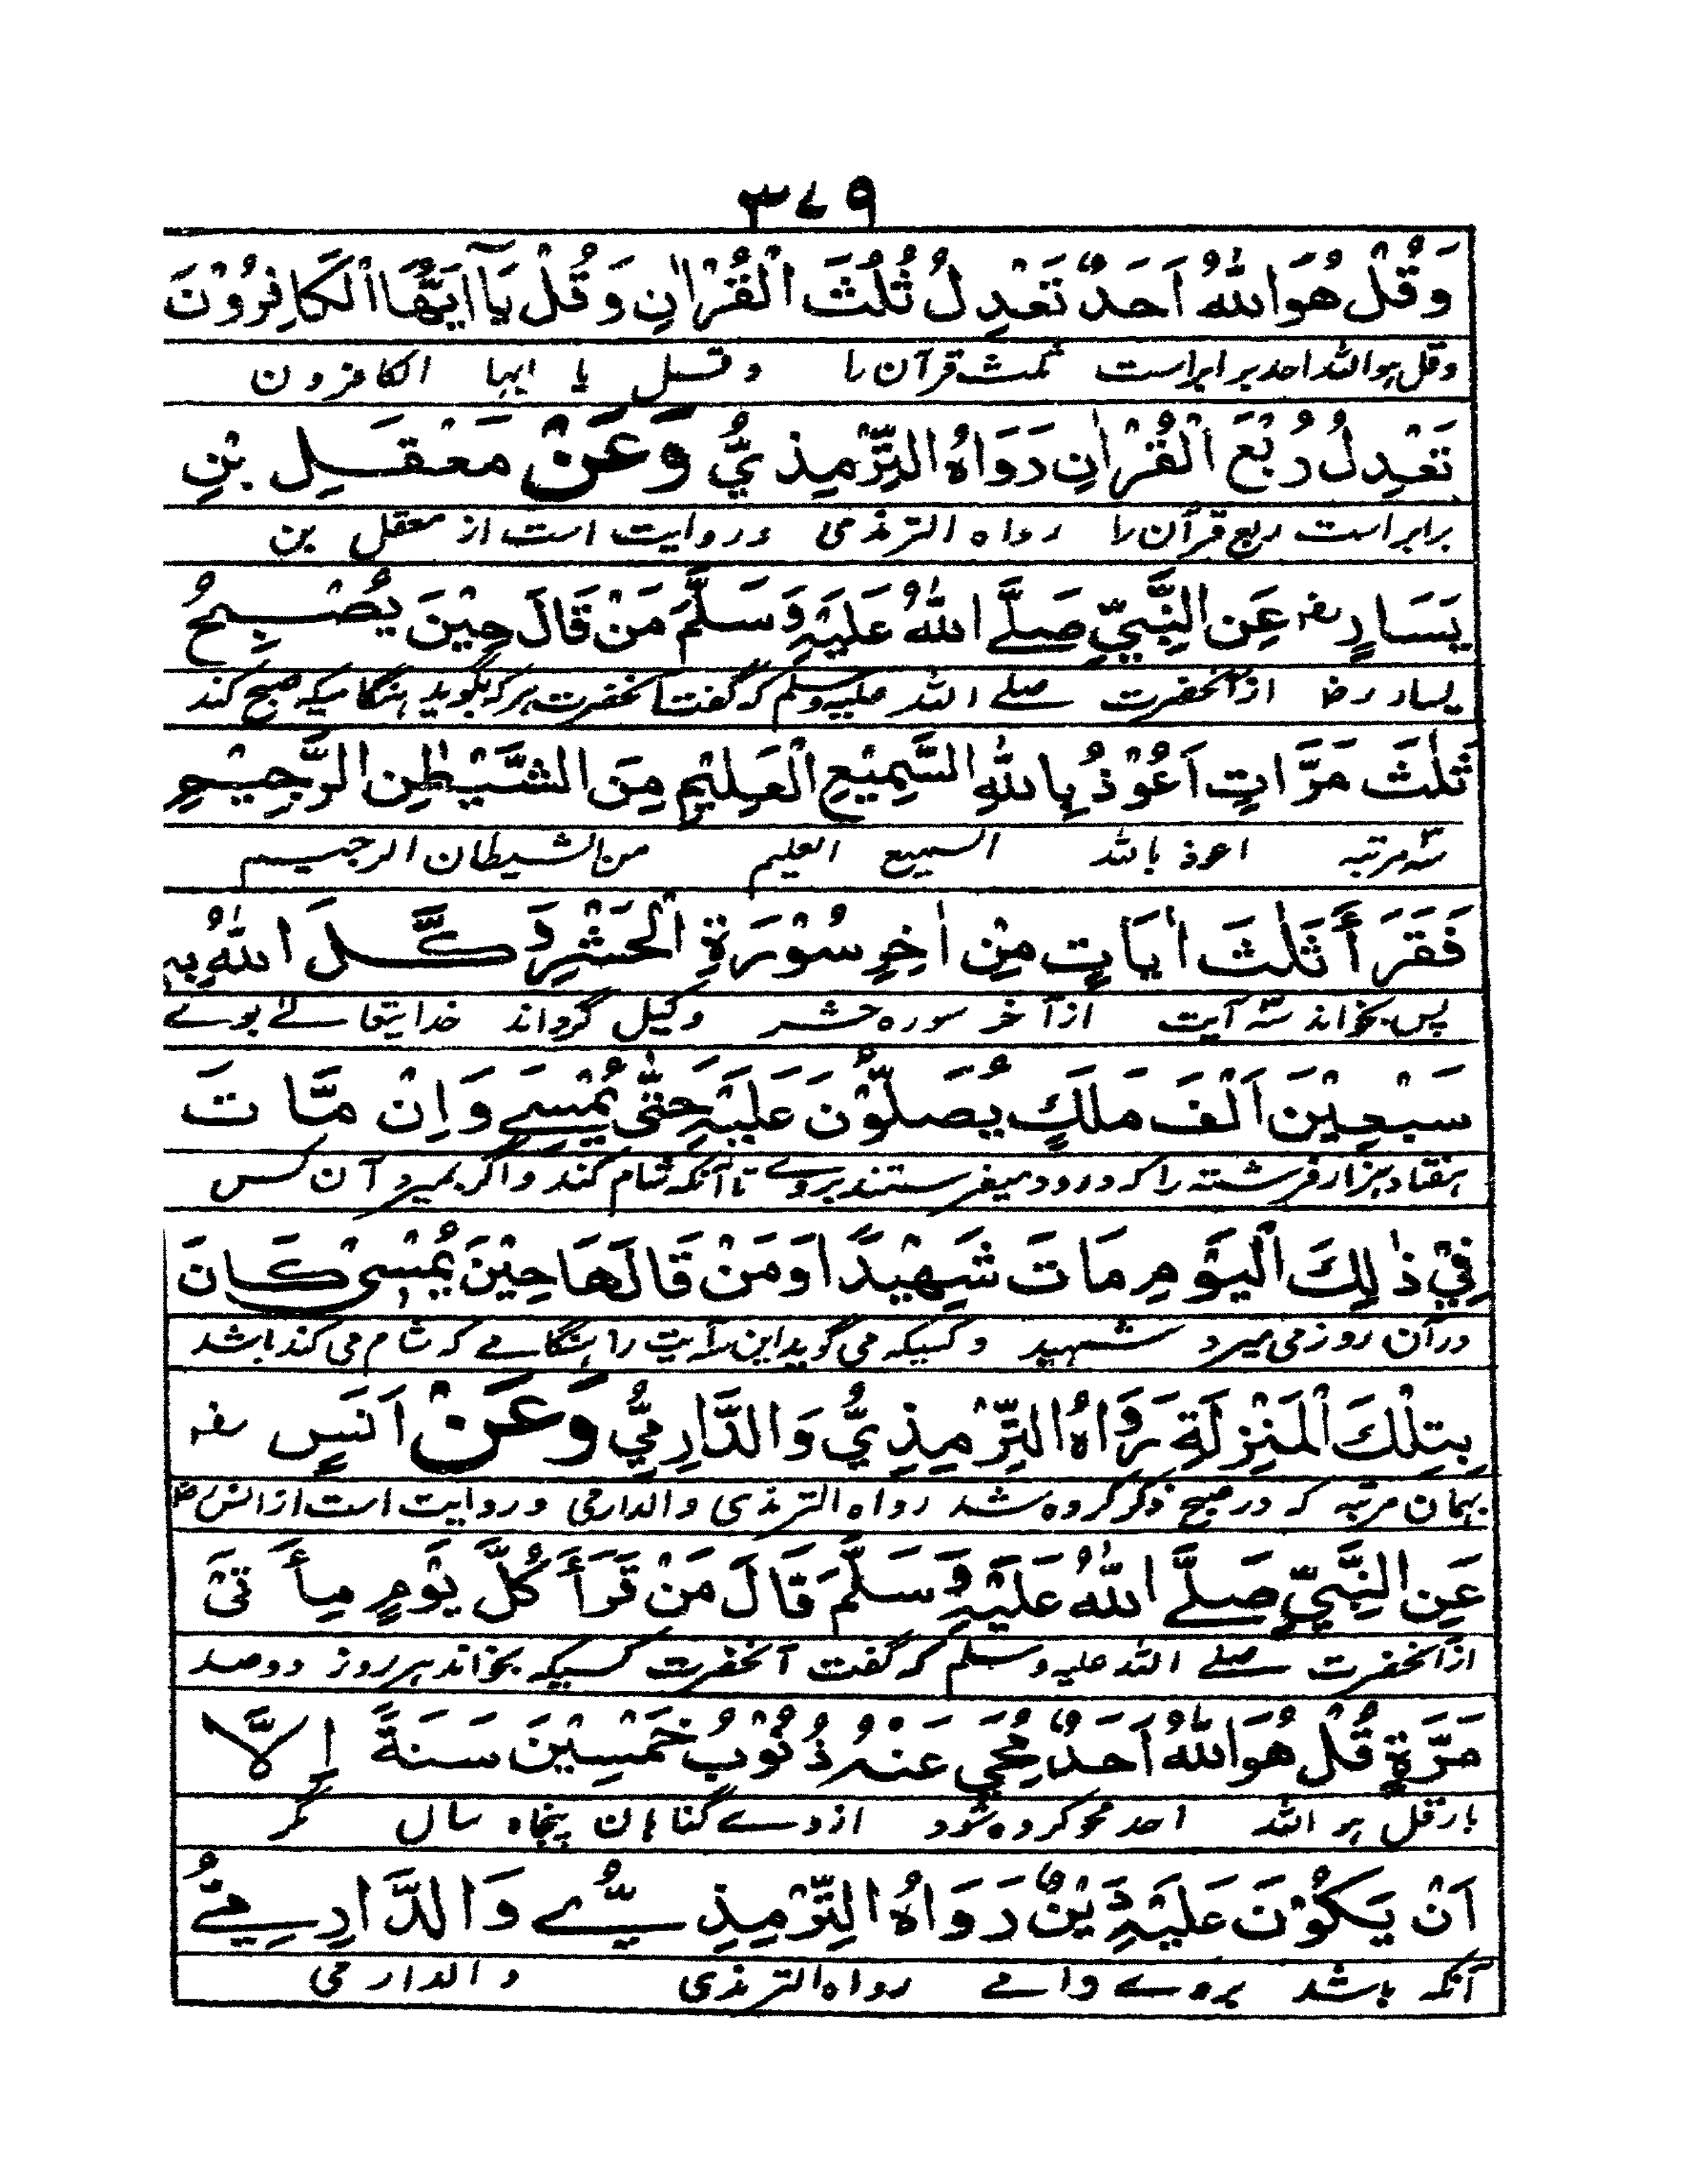 ۳۷۹
وَقُلْ هُوَ اللّٰهُ اَحَدٌ تَعْدِلُ ثُلُثَ الْقُرْاٰنِ وَقُلْ يَآ اَيُّهَا الْكَافِرُوْنَ
وقل ہو اللہ احد برابر است ثلث قرآن را وقل یا ایہا الکافرون
تَعْدِلُ رُبُعَ الْقُرْاٰنِ رَوَاهُ التِّرْمِذِيُّ وَعَنْ مَعْقَلِ بْنِ
برابر است ربع قرآن را رواہ الترمذی و روایت است از معقل بن
يَسَارٍ رضہ عَنِ النَّبِيِّ صَلَّے اللّٰهُ عَلَيْهِ وَسَلَّمَ مَنْ قَالَ حِيْنَ يُصْبِحُ
یسار رض از آنحضرت صلے اللہ علیہ وسلم کہ گفت آنحضرت ہر کہ بگوید ہنگامیکہ صبح کند
ثَلٰثَ مَرَّاتٍ اَعُوْذُ بِاللّٰهِ السَّمِيْعِ الْعَلِيْمِ مِنَ الشَّيْطٰنِ الرَّجِيْمِ
سہ مرتبہ اعوذ باللہ السمیع العلیم من الشیطان الرجیم
فَقَرَأَ ثَلٰثَ اٰيَاتٍ مِنْ اٰخِرِ سُوْرَةِ الْحَشْرِ وَكَّلَ اللّٰهُ بِهٖ
پس بخواند سہ آیت از آخر سورہ حشر وکیل گرداند خدایتعالے بوے
سَبْعِيْنَ اَلْفَ مَلَكٍ يُصَلُّوْنَ عَلَيْهِ حَتّٰى يُمْسِے وَاِنْ مَّاتَ
ہفتاد ہزار فرشتہ را کہ درود میفرستند بروے تا آنکہ شام کند و اگر بمیرد آن کس
فِيْ ذٰلِكَ الْيَوْمِ مَاتَ شَهِيْدًا وَمَنْ قَالَهَا حِيْنَ يُمْسِىْ كَانَ
در آن روز می میرد شہید و کسیکہ می گوید این سہ آیت را ہنگامے کہ شام می کند باشد
بِتِلْكَ الْمَنْزِلَةِ رَوَاهُ التِّرْمِذِيُّ وَالدَّارِمِيُّ وَعَنْ اَنَسٍ رضہ
بہمان مرتبہ کہ در صبح ذکر کردہ شد رواہ الترمذی والدارمی و روایت است از انس رض
عَنِ النَّبِيِّ صَلَّے اللّٰهُ عَلَيْهِ وَسَلَّمَ قَالَ مَنْ قَرَأَ كُلَّ يَوْمٍ مِأَتَىْ
از آنحضرت صلے اللہ علیہ وسلم کہ گفت آنحضرت کسیکہ بخواند ہر روز دو صد
مَرَّةٍ قُلْ هُوَ اللّٰهُ اَحَدٌ مُحِيَ عَنْهُ ذُنُوْبُ خَمْسِيْنَ سَنَةً اِلَّا
بار قل ہو اللہ احد محو کردہ شود از وے گناہان پنجاہ سال مگر
اَنْ يَكُوْنَ عَلَيْهِ دَيْنٌ رَوَاهُ التِّرْمِذِيُّے وَالدَّارِمِيُّ
آنکہ باشد بروے وامے رواہ الترمذی والدارمی